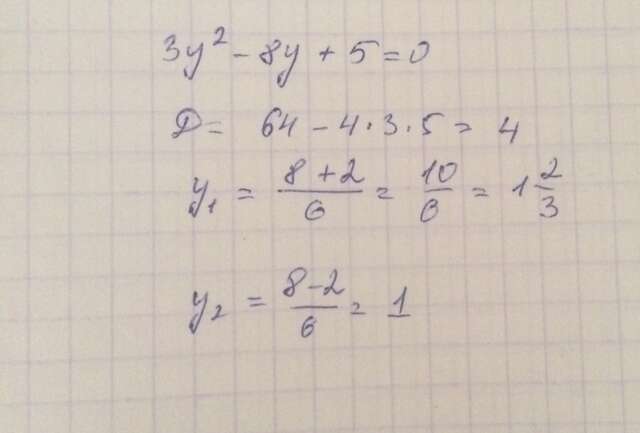 3y² - 8y + 5 = 0
D = 64 - 4·3·5 = 4
y₁ = (8+2)/6 = 10/6 = 1 2/3
y₂ = (8-2)/6 = 1